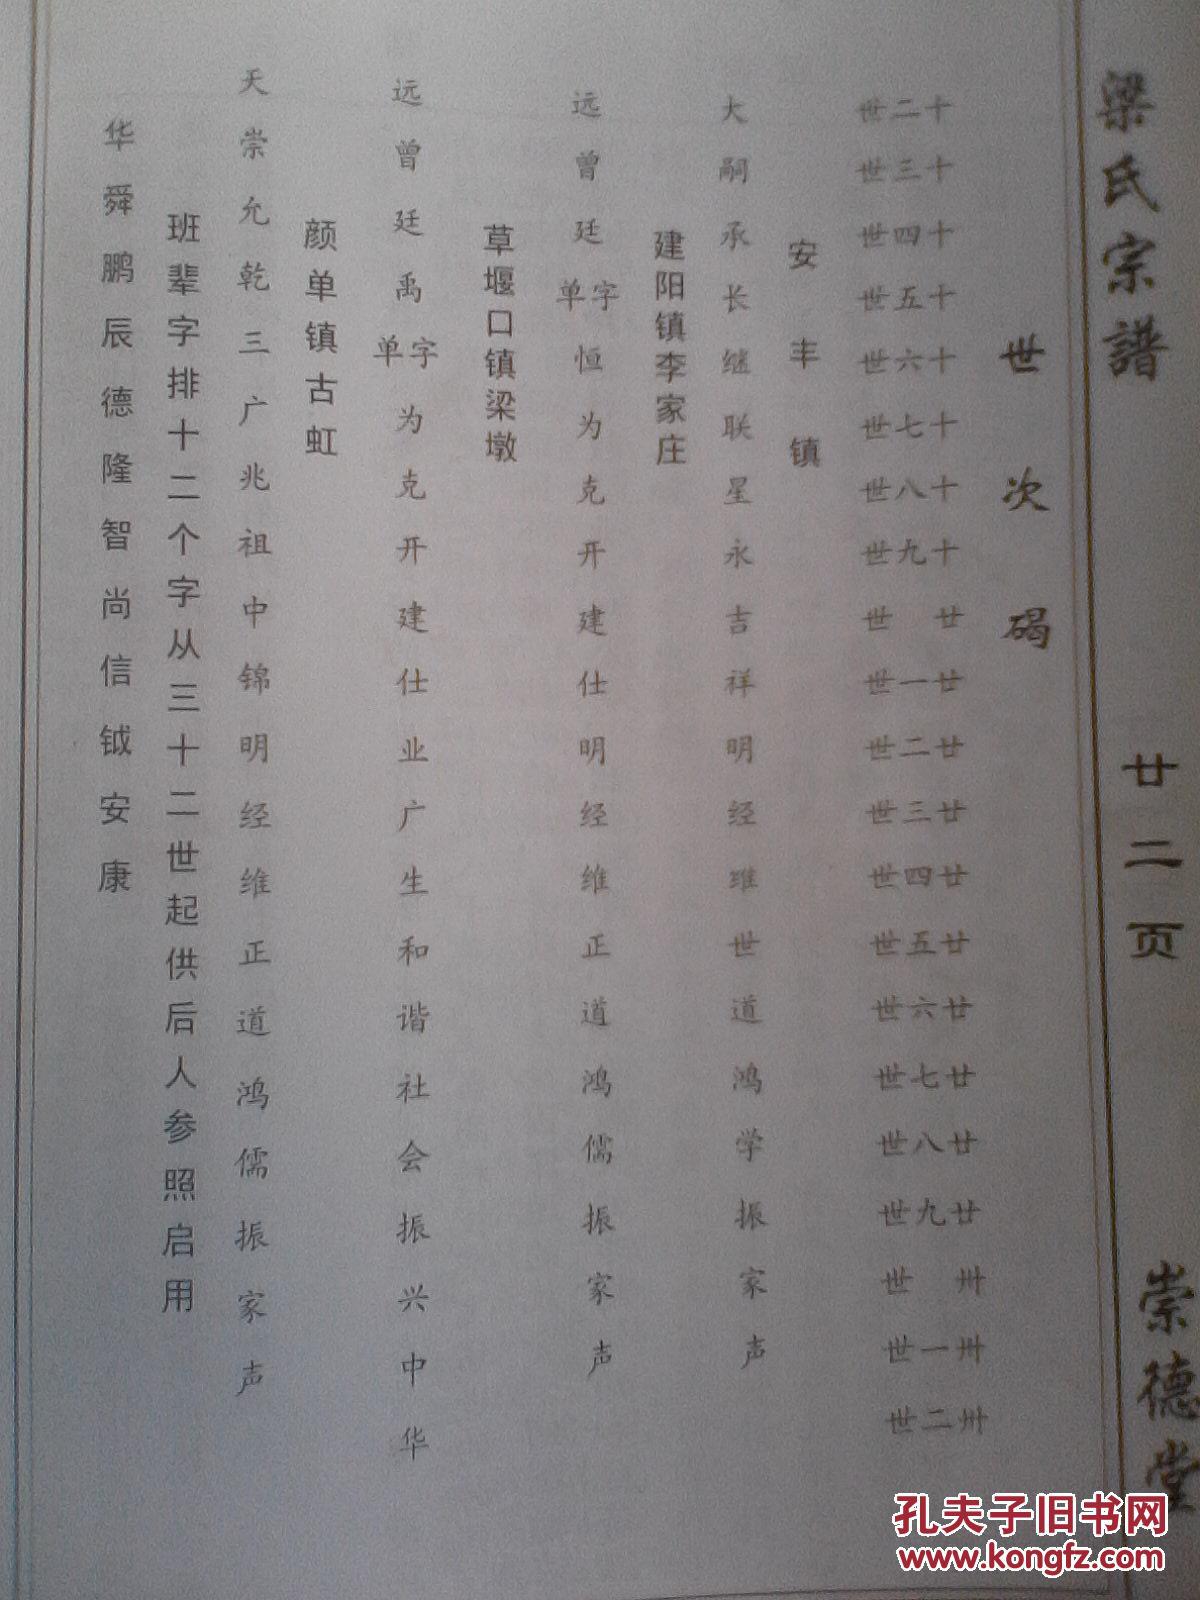 梁氏宗譜
廿二页
崇德堂
世次碣
十二世
十三世
十四世
十五世
十六世
十七世
十八世
十九世
廿世
廿一世
廿二世
廿三世
廿四世
廿五世
廿六世
廿七世
廿八世
廿九世
卅世
卅一世
卅二世
安丰镇
大嗣承长继联星永吉祥明经维世道鸿学振家声
建阳镇李家庄
远曾廷单字恒为克开建仕明经维正道鸿儒振家声
草堰口镇梁墩
远曾廷禹单字为克开建仕业广生和谐社会振兴中华
颜单镇古虹
天崇允乾三广兆祖中锦明经维正道鸿儒振家声
班辈字排十二个字从三十二世起供后人参照启用
华舜鹏辰德隆智尚信钺安康
孔夫子旧书网
www.kongfz.com